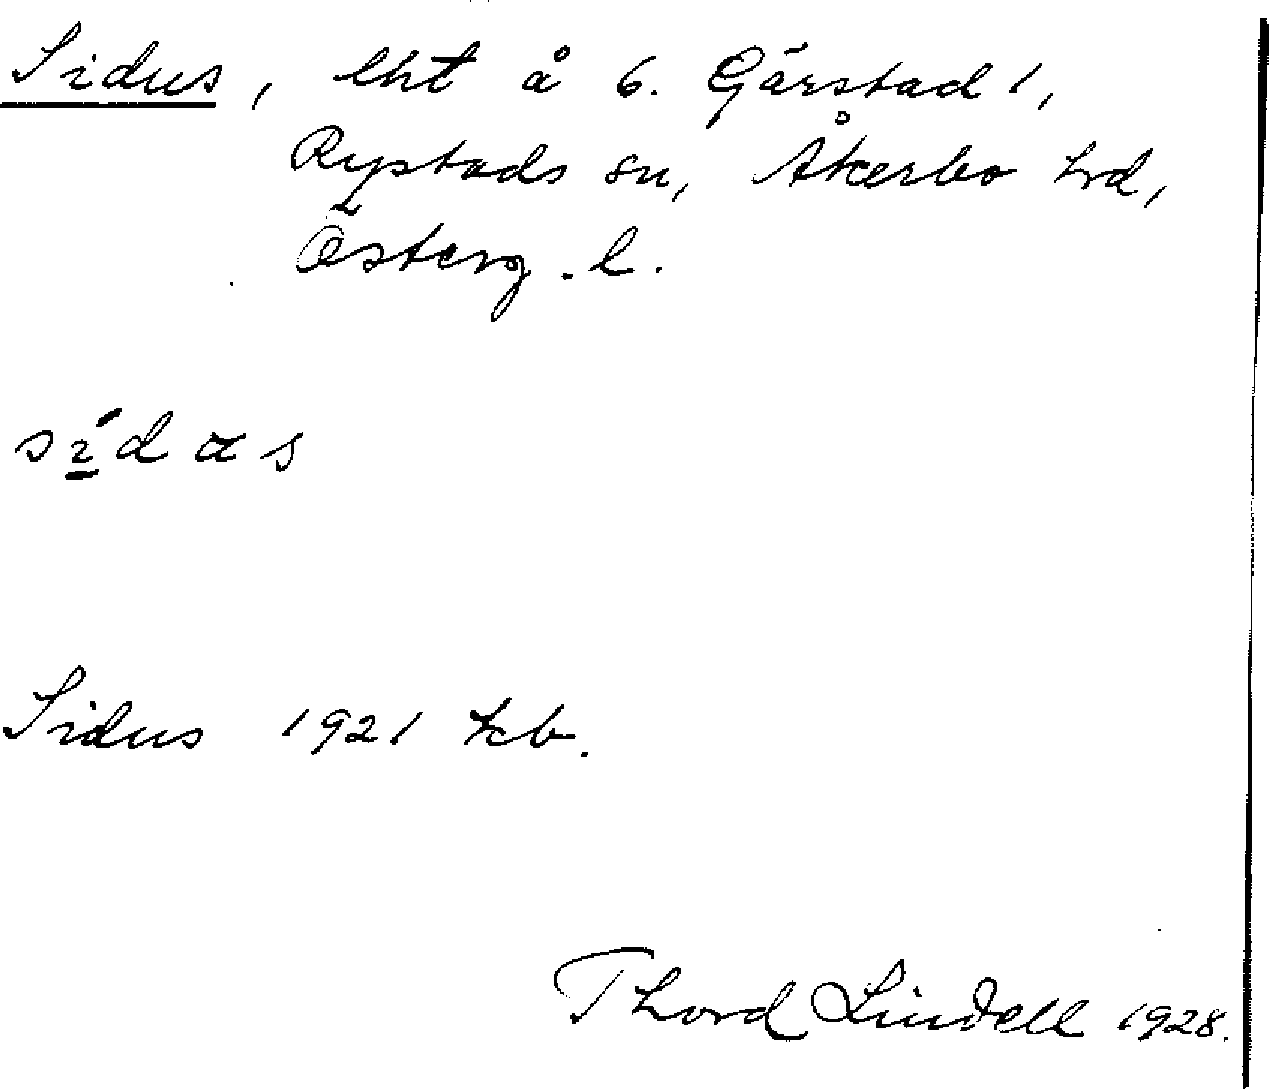 Sidus, lht å 6. Gärstad 1,
Rystads sn, Åkerbo hrd,
Österg. l.
sídɷs
Sidus 1921 kb.
Thord Lindell 1928.